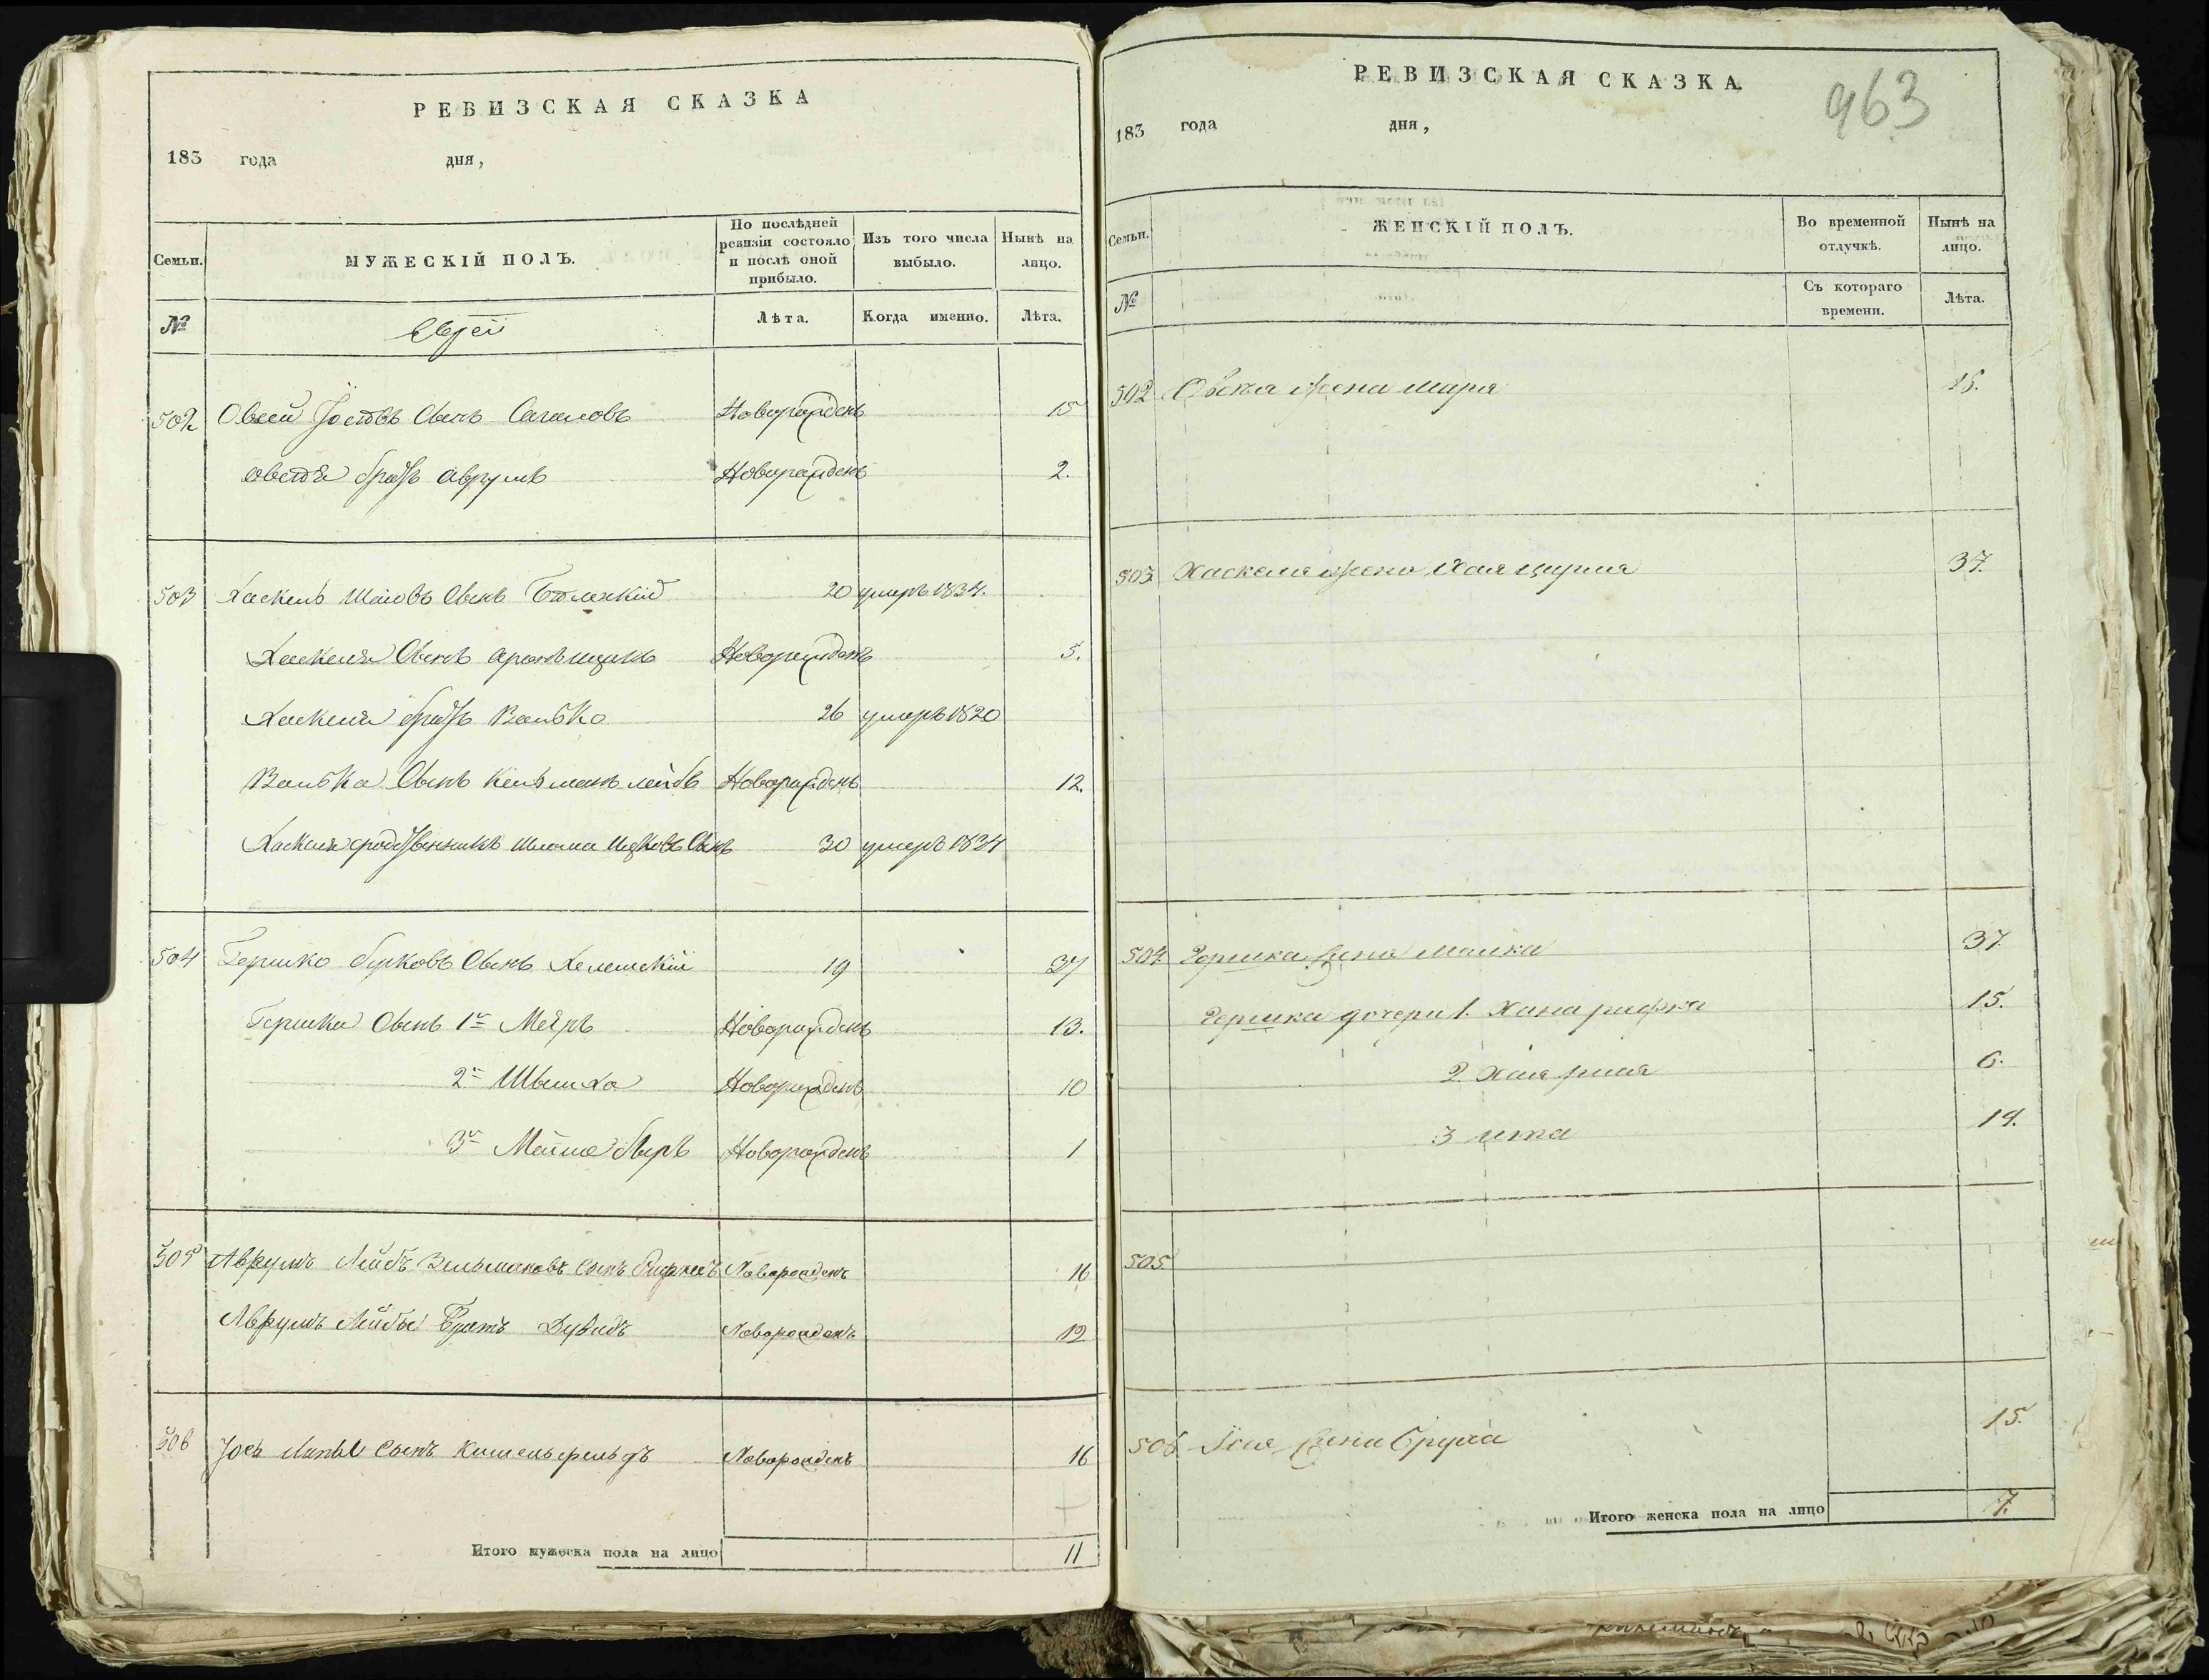 РЕВИЗСКАЯ СКАЗКА
183 года дня,
Семьи.
МУЖЕСКІЙ ПОЛЪ.
По послѣдней
ревизіи состояло
и послѣ оной
прибыло.
Изъ того числа
выбыло.
Нынѣ на
лицо.
№
Евреи
Лѣта.
Когда именно.
Лѣта.
502 Овсей Іосіовъ Сынъ Новорожденъ 15
Овсея братъ Аврумъ Новорожденъ 2.
503 Хаскель Шаіовъ Сынъ 20 умеръ 1834.
Хаскеля Сынъ Аронъ Ицикъ Новорожденъ 5.
Хаскеля братъ Волько 26 умеръ 1820
Волька Сынъ Кельманъ Лейбъ Новорожденъ 12.
Хаскеля сродственникъ Шлома Ицковъ Сынъ 30 умеръ 1834
504 Гершко Берковъ Сынъ Хелемскій 19 37
Гершка Сынъ 1й Меиръ Новорожденъ 13.
2й Шымха Новорожденъ 10
3й Беръ Новорожденъ 1
505 Аврумъ Лейбъ Зельмановъ Сынъ Новорожденъ 16
Аврумъ Лейбы Братъ Дувидъ Новорожденъ 12
506 Іось Сынъ Кишельфельдъ Новорожденъ 16
Итого мужеска пола на лицо 11
РЕВИЗСКАЯ СКАЗКА
963
183 года дня,
Семьи.
ЖЕНСКІЙ ПОЛЪ.
Во временной
отлучкѣ.
Нынѣ на
лицо.
№
Съ котораго
времени.
Лѣта.
502 Овсея жена Маря
503 Хаскеля жена Хая Цурля 37.
504 Гершка жена Малка 37.
Гершка дочери 1. Хана Рифка 15.
2. Хая 6.
3 Ита 14.
505.
506. Іося жена Бруха 15.
Итого женска пола на лицо 7.